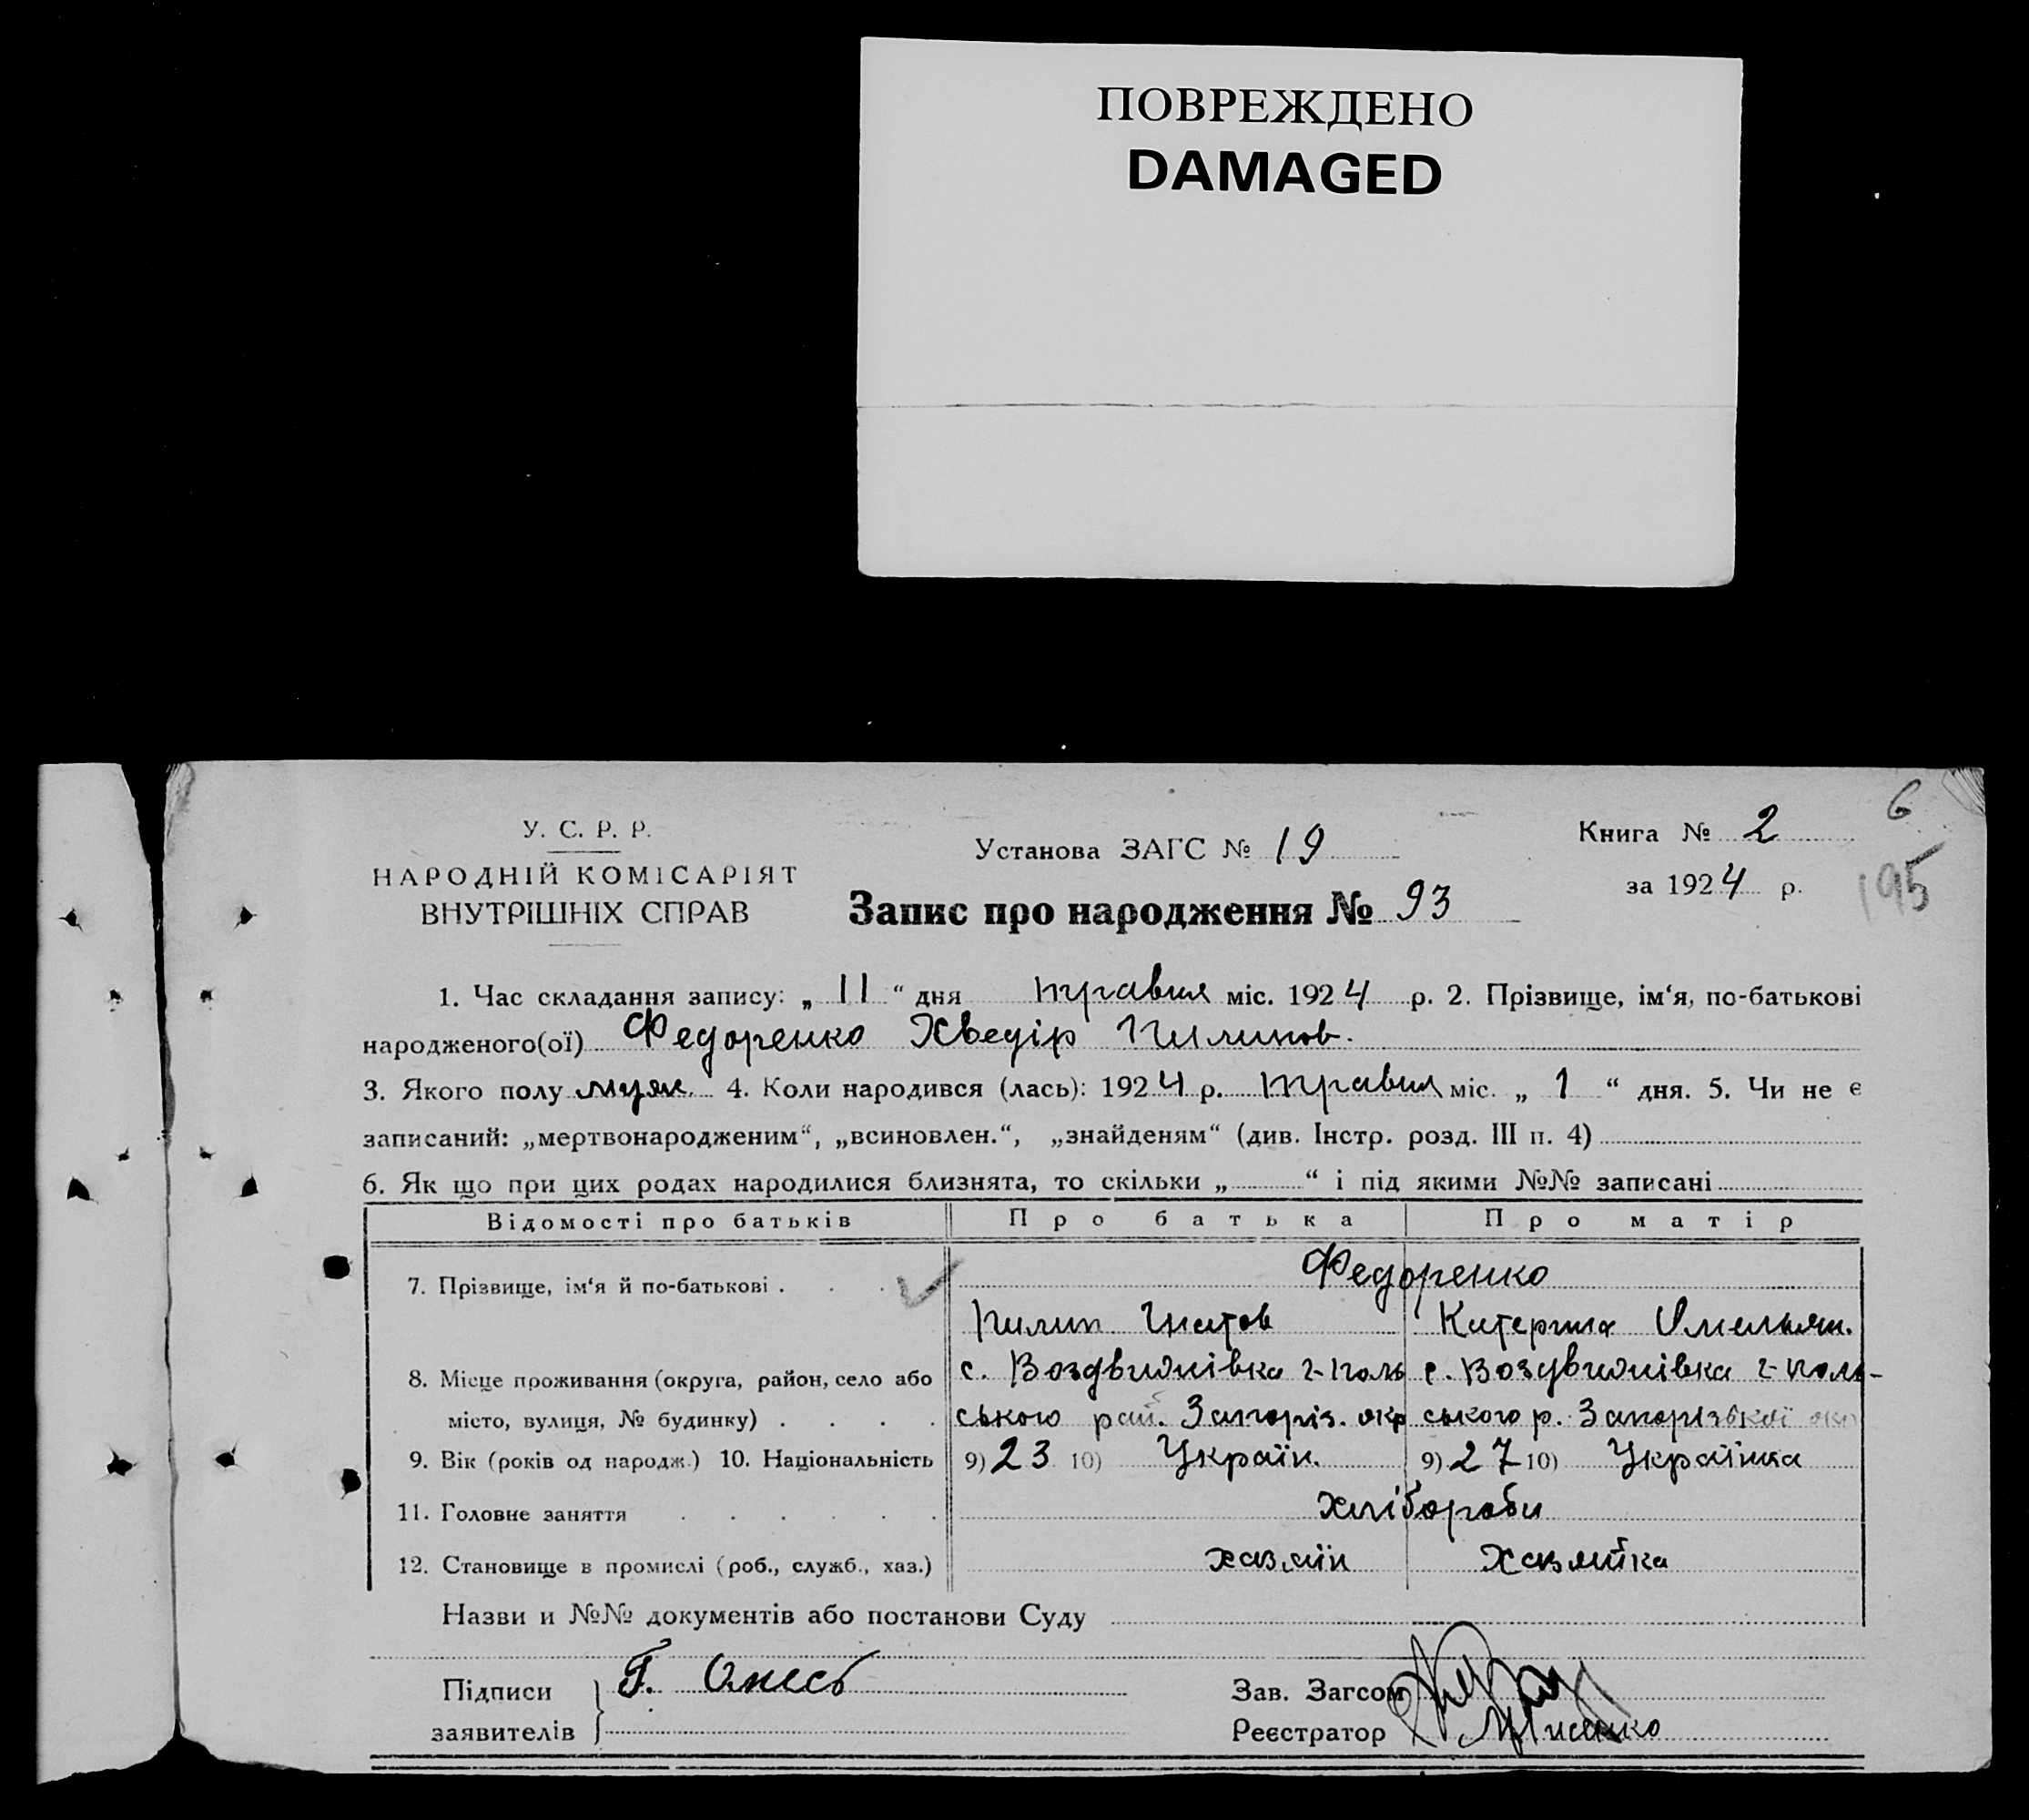 ПОВРЕЖДЕНО
DAMAGED
6
195
У. С. Р. Р.
НАРОДНІЙ КОМІСАРІЯТ
ВНУТРІШНІХ СПРАВ
Установа ЗАГС № 19
Запис про народження № 93
Книга № 2
за 1924 р.
1. Час складання запису: „ 11 “ дня травня міс. 1924 р. 2. Прізвище, ім‘я, по-батькові
народженого(ої) Федоренко Хведір Пилипов.
3. Якого полу муж. 4. Коли народився (лась): 1924 р. травня міс. „ 1 “ дня. 5. Чи не є
записаний: „мертвонародженим“, „всиновлен.“, „знайденям“ (див. Інстр. розд. III п. 4)
6. Як що при цих родах народилися близнята, то скільки „ “ і під якими №№ записані
Відомості про батьків Про батька Про матір
7. Прізвище, ім‘я й по-батькові . . . Федоренко
Пилип Гнатов Катерина Омельян.
8. Місце проживання (округа, район, село або с. Воздвижнівка г-поль с. Воздвижнівка г-поль-
місто, вулиця, № будинку) . . . . ського рай. Запоріз. окр ського р. Запорізької окр
9. Вік (років од народж.) 10. Національність 9) 23 10) Україн. 9) 27 10) Українка
11. Головне заняття . . . . . . хлібороби
12. Становище в промислі (роб., служб., хаз.) хазяїн хазяйка
Назви и №№ документів або постанови Суду
Підписи
заявителів
Зав. Загсом
Реєстратор